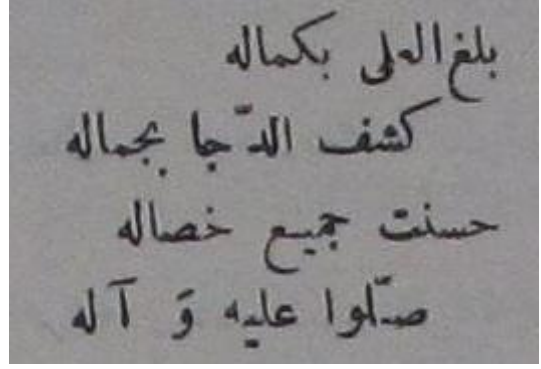 بلغ العلى بكماله
كشف الدّجا بجماله
حسنت جميع خصاله
صلّوا عليه وَ آله